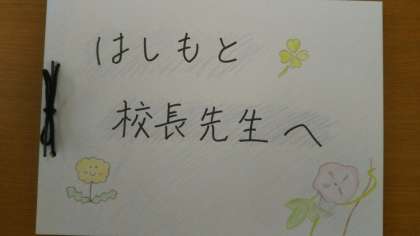 はしもと
校長先生へ